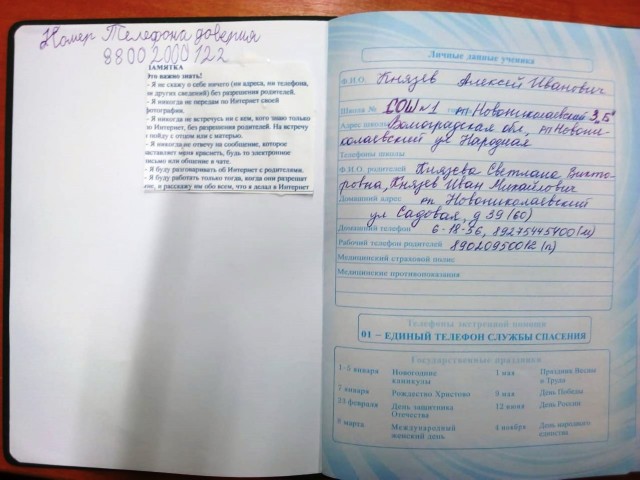 Номер Телефона доверия
88002000122
ПАМЯТКА
Это важно знать!
- Я не скажу о себе ничего (ни адреса, ни телефона,
ни других сведений) без разрешения родителей.
- Я никогда не передам по Интернет своей
фотографии.
- Я никогда не встречусь ни с кем, кого знаю только
по Интернет, без разрешения родителей. На встречу
я пойду с отцом или с матерью.
- Я никогда не отвечу на сообщение, которое
заставляет меня краснеть, будь то электронное
письмо или общение в чате.
- Я буду разговаривать об Интернет с родителями.
- Я буду работать только тогда, когда они разрешат
мне, и расскажу им обо всем, что я делал в Интернет
Личные данные ученика
Ф.И.О. Князев Алексей Иванович
Школа № СОШ №1 рп Новониколаевский 3"Б"
Адрес школы Волгоградская обл, рп Новони-
колаевский ул Народная
Телефоны школы
Ф.И.О. родителей Князева Светлана Викто-
ровна, Князев Иван Михайлович
Домашний адрес рп Новониколаевский
ул Садовая, д 39 (60)
Домашний телефон 6-18-56, 89275445400 (м)
Рабочий телефон родителей 89020950012 (п)
Медицинский страховой полис
Медицинские противопоказания
Телефоны экстренной помощи
01 – ЕДИНЫЙ ТЕЛЕФОН СЛУЖБЫ СПАСЕНИЯ
Государственные праздники
1-5 января Новогодние каникулы
7 января Рождество Христово
23 февраля День защитника Отечества
8 марта Международный женский день
1 мая Праздник Весны и Труда
9 мая День Победы
12 июня День России
4 ноября День народного единства